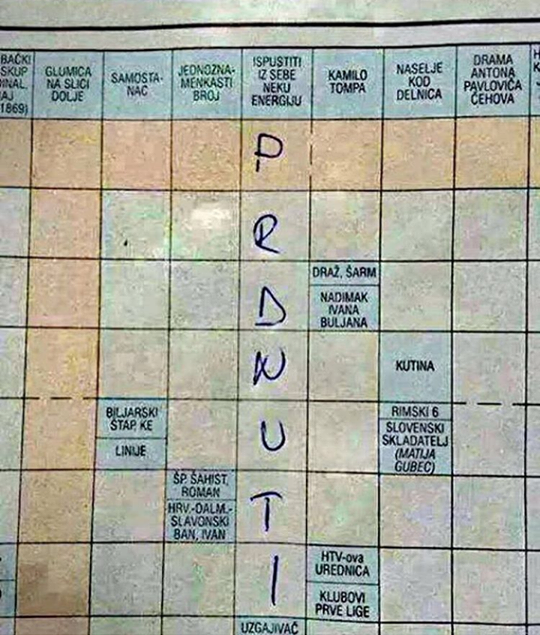 BAČKI
SKUP
DINAL,
AJ
1869)
GLUMICA
NA SLICI
DOLJE
SAMOSTA-
NAC
JEDNOZNA-
MENKASTI
BROJ
ISPUSTITI
IZ SEBE
NEKU
ENERGIJU
KAMILO
TOMPA
NASELJE
KOD
DELNICA
DRAMA
ANTONA
PAVLOVIĆA
ČEHOVA
P
R
DRAŽ, ŠARM
NADIMAK
IVANA
BULJANA
D
N
KUTINA
BILJARSKI
ŠTAP, KE
LINIJE
U
RIMSKI 6
SLOVENSKI
SKLADATELJ
(MATIJA
GUBEC)
ŠP. ŠAHIST,
ROMAN
HRV.-DALM.-
SLAVONSKI
BAN, IVAN
T
I
HTV-ova
UREDNICA
KLUBOVI
PRVE LIGE
UZGAJIVAČ